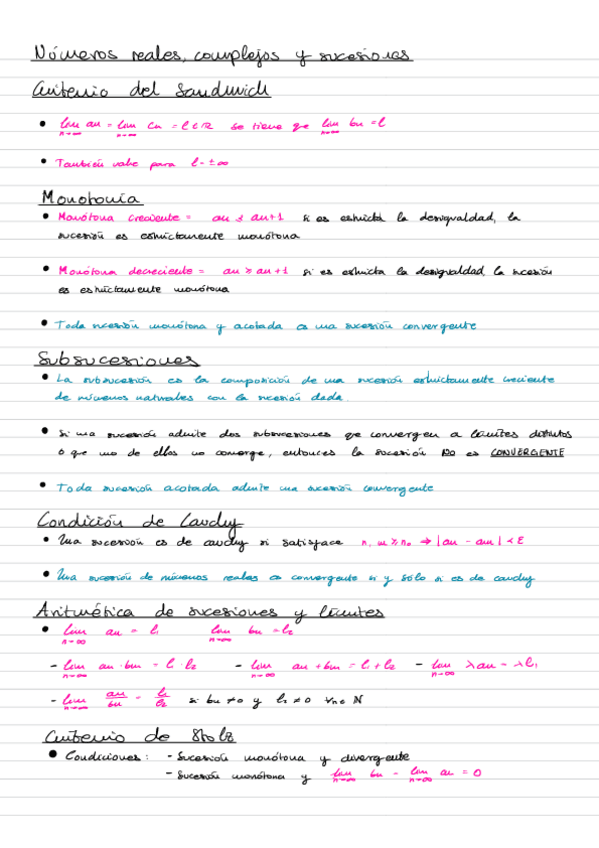 Números reales, complejos y sucesiones
Criterio del Sandwich
• lim an = lim cn = l ∈ R se tiene que lim bn = l
n→∞ n→∞ n→∞
• También vale para l = ±∞
Monotonía
• Monótona creciente = an ≤ an+1 si es estricta la desigualdad, la
sucesión es estrictamente monótona
• Monótona decreciente = an ≥ an+1 si es estricta la desigualdad, la sucesión
es estrictamente monótona
• Toda sucesión monótona y acotada es una sucesión convergente
Subsucesiones
• La subsucesión es la composición de una sucesión estrictamente creciente
de números naturales con la sucesión dada
• Si una sucesión admite dos subsucesiones que convergen a límites distintos
o que uno de ellos no converge, entonces la sucesión NO es CONVERGENTE
• Toda sucesión acotada admite una sucesión convergente
Condición de Cauchy
• Una sucesión es de cauchy si satisface n, m ≥ n₀ ⇒ |an - am| < ε
• Una sucesión de números reales es convergente si y sólo si es de cauchy
Aritmética de sucesiones y límites
• lim an = l₁ lim bn = l₂
n→∞ n→∞
- lim an · bn = l · l₂ - lim an + bn = l + l₂ - lim λan = λl₁
n→∞ n→∞ n→∞
- lim an/bn = l₁/l₂ si bn ≠ 0 y l₂ ≠ 0 ∀n∈ N
n→∞
Criterio de Stolz
• Condiciones: - Sucesión monótona y divergente
- Sucesión monótona y lim bn = lim an = 0
n→∞ n→∞